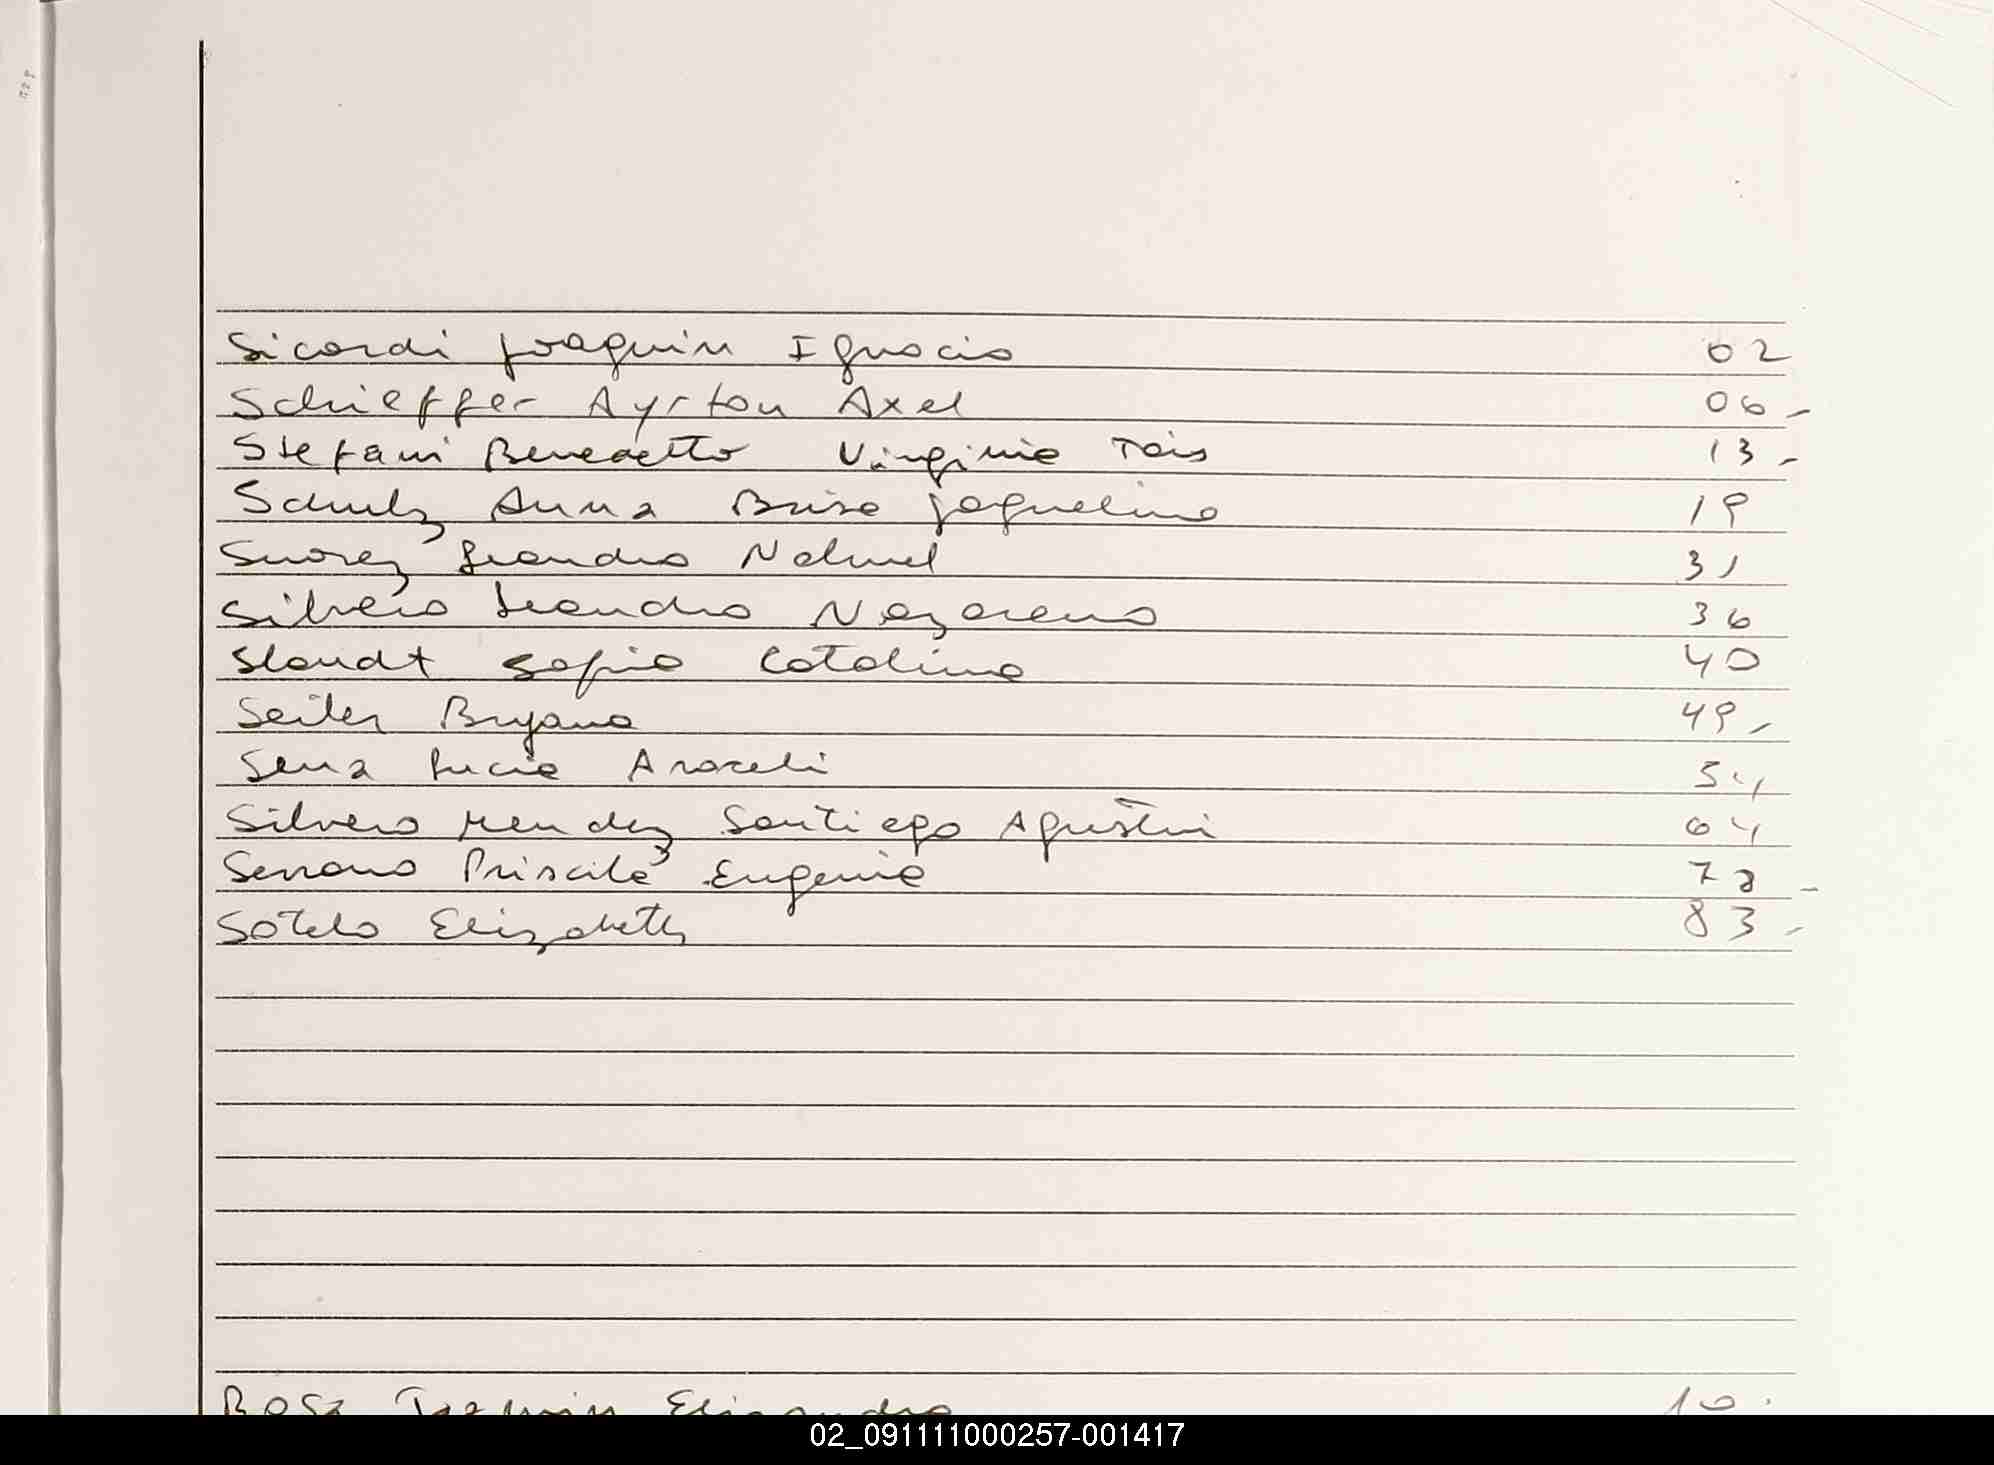 Sicardi Joaquin Ignacio 02
Schieffer Ayrton Axel 06-
Stefani Benedetto Virginia Tais 13-
Schulz Anna Brisa Jaquelina 19
Suarez Leandro Nahuel 31
Silvero Leandro Nazareno 36
Slaudt Sofia Catalina 40
Seiler Bryana 49-
Sena Lucia Araceli 54
Silvero Mendez Santiago Agustin 64
Serrano Priscila Eugenia 78-
Sotelo Elizabeth 83-
Rosa Joaquin 10
02_091111000257-001417